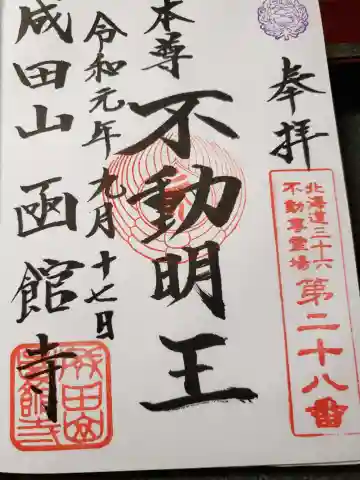 奉拝
北海道三十六
不動尊霊場
第二十八番
本尊
不動明王
令和元年九月十七日
成田山函館寺